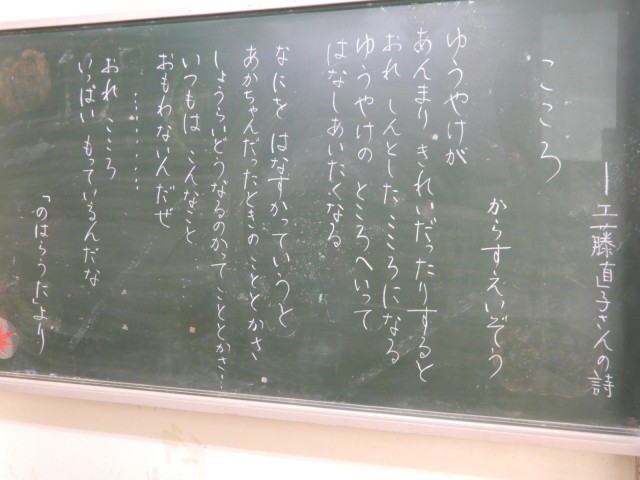 ―工藤直子さんの詩
こころ
からすえいぞう
ゆうやけが
あんまり きれいだったりすると
おれ しんとした こころになる
ゆうやけの ところへいって
はなしあいたくなる
なにを はなすかっていうと
あかちゃんだったときの こととかさ
しょうらいどうなるのかって こととかさ…
いつもは こんなこと
おもわないんだぜ
………
おれ こころ
いっぱい もっているんだな
「のはらうた」より